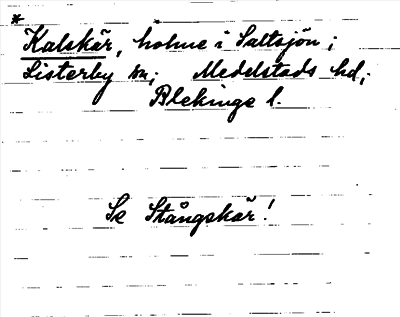 *
Kalskär, holme i Saltsjön;
Listerby sn; Medelstads hd;
Blekinge l.
Se Stångskär!